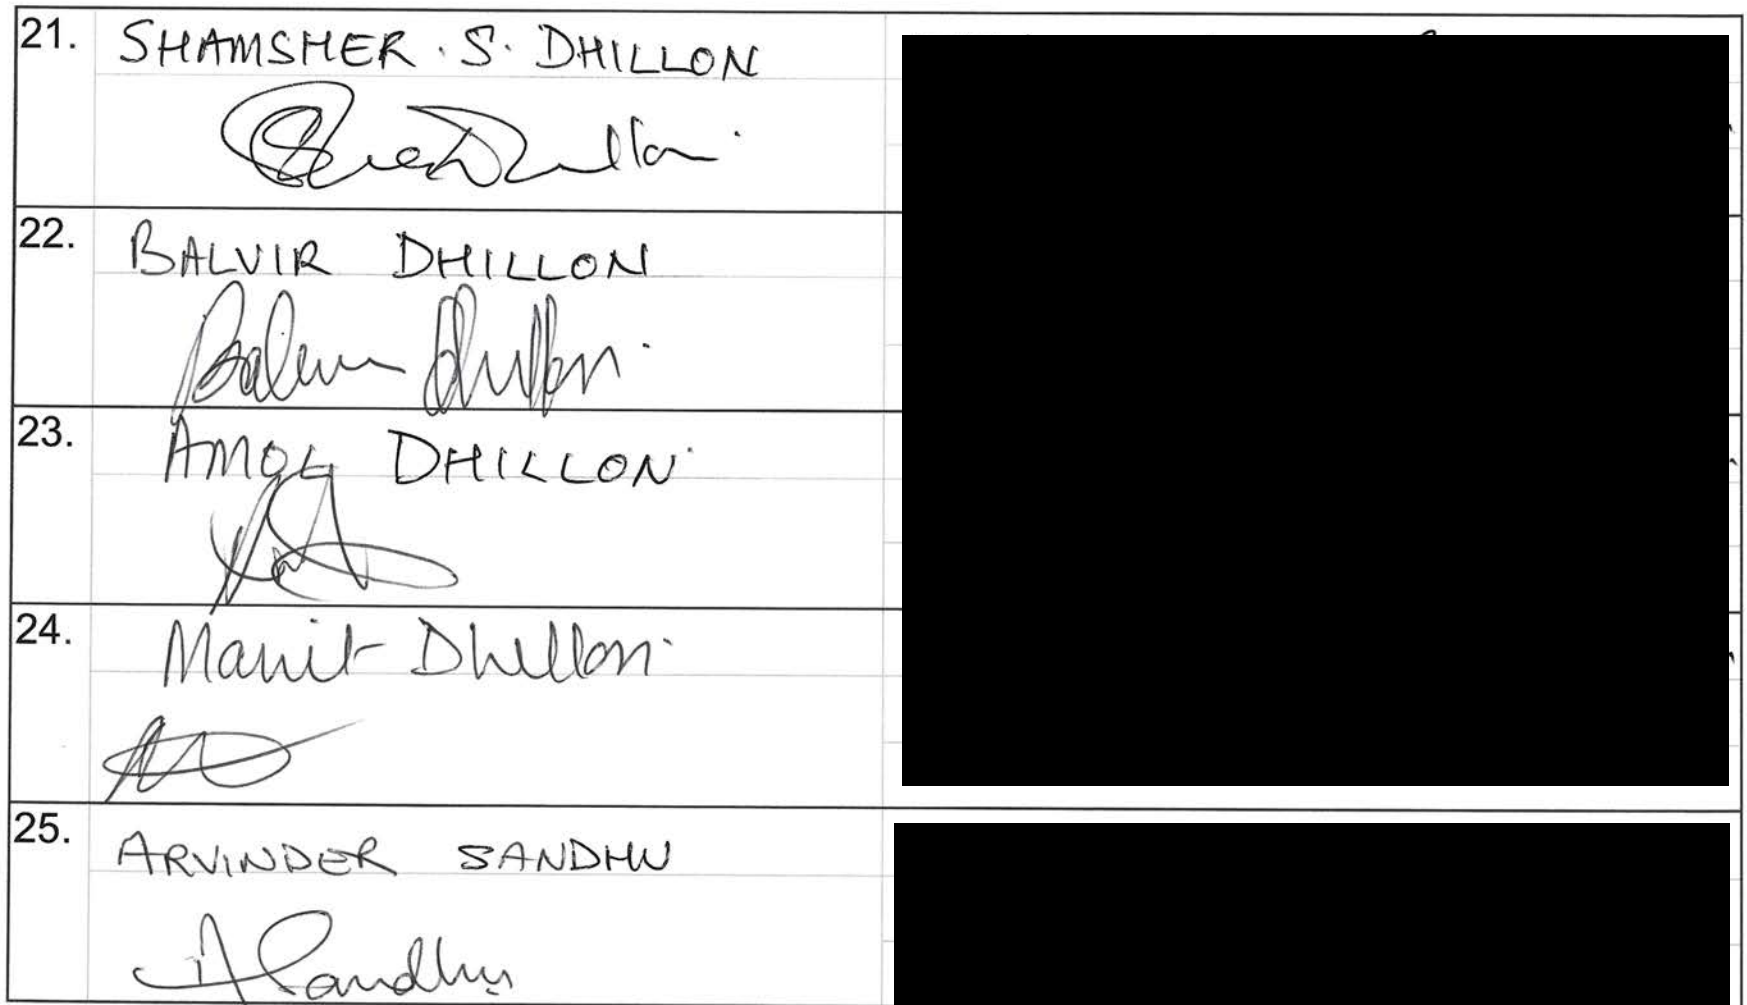 21. SHAMSHER . S. DHILLON
22. BALVIR DHILLON
Balvir Dhillon
23. AMOL DHILLON
24. Manit Dhillon
25. ARVINDER SANDHU
A Sandhu